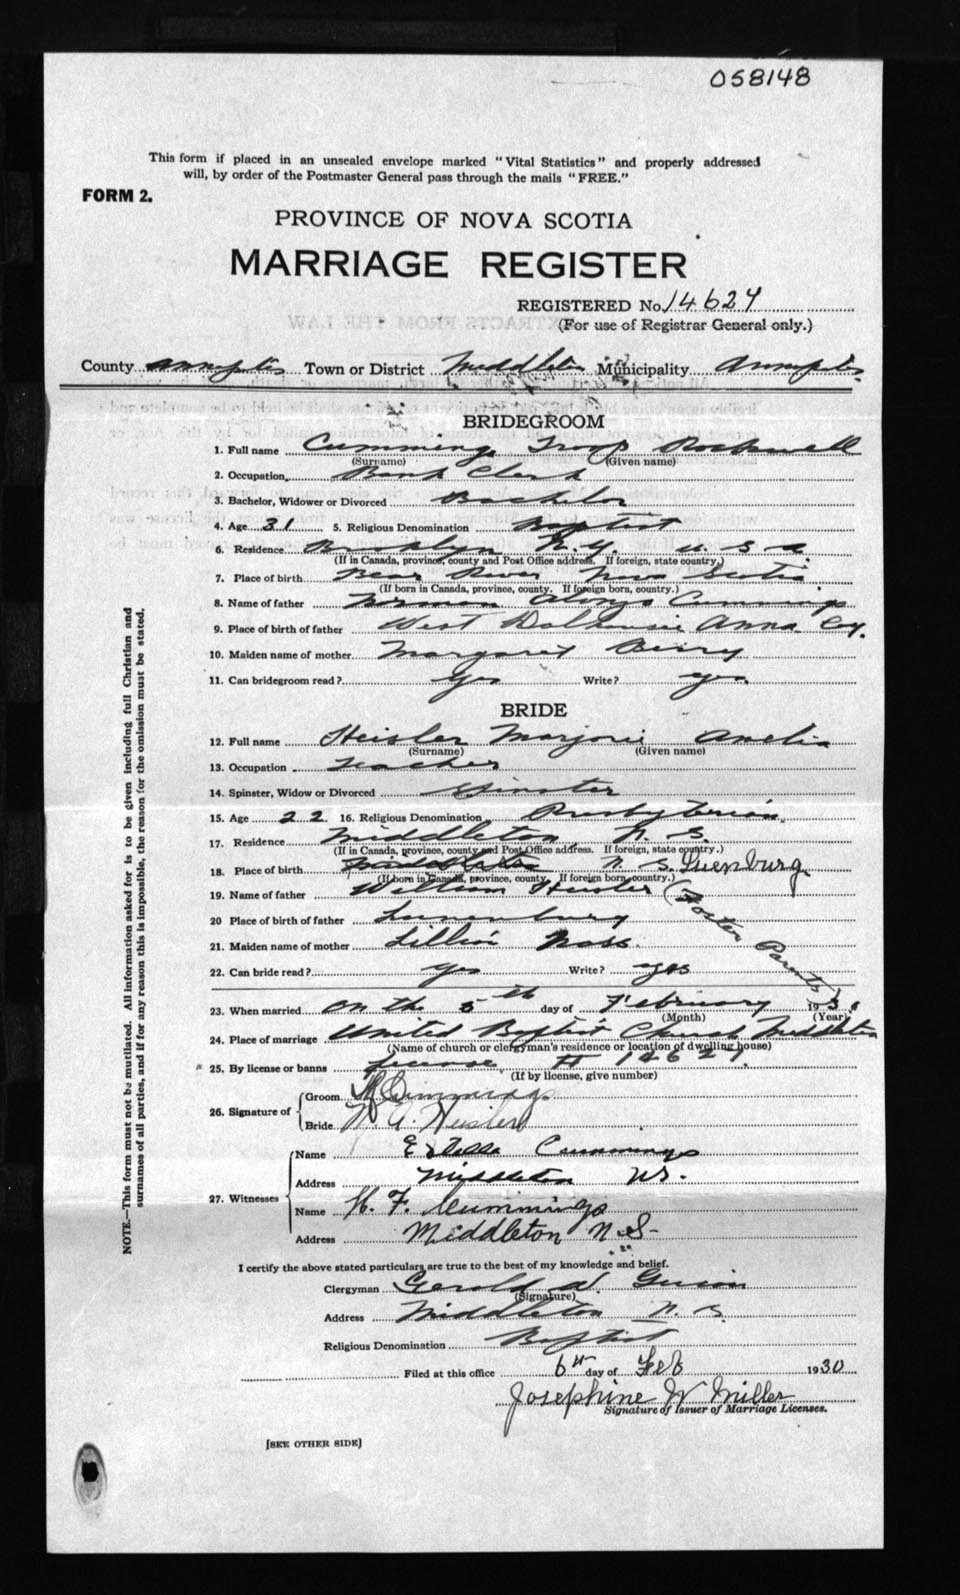 058148
This form if placed in an unsealed envelope marked "Vital Statistics" and properly addressed
will, by order of the Postmaster General pass through the mails "FREE."
FORM 2.
PROVINCE OF NOVA SCOTIA
MARRIAGE REGISTER
REGISTERED No. 14627
(For use of Registrar General only.)
County Annapolis Town or District Middleton Municipality Annapolis
BRIDEGROOM
1. Full name Cummings Troop Rockwell
(Surname) (Given name)
2. Occupation Bank Clerk
3. Bachelor, Widower or Divorced Bachelor
4. Age 31 5. Religious Denomination Baptist
6. Residence Brooklyn N.Y. U.S.A.
(If in Canada, province, county and Post Office address. If foreign, state country.)
7. Place of birth Bear River Nova Scotia
(If born in Canada, province, county. If foreign born, country.)
8. Name of father Norman Alonzo Cummings
9. Place of birth of father West Dalhousie Anna. Co.
10. Maiden name of mother Margaret Berry
11. Can bridegroom read? yes Write? yes
BRIDE
12. Full name Heisler Marjorie Amelia
(Surname) (Given name)
13. Occupation Teacher
14. Spinster, Widow or Divorced Spinster
15. Age 22 16. Religious Denomination Presbyterian
17. Residence Middleton N.S.
(If in Canada, province, county and Post Office address. If foreign, state country.)
18. Place of birth Middleton N.S. Luenburg
(If born in Canada, province, county. If foreign born, country.)
19. Name of father William Heisler (Foster Parents)
20 Place of birth of father Lunenburg
21. Maiden name of mother Lillian Nass
22. Can bride read? yes Write? yes
23. When married on the 5th day of February 1930
(Month) (Year)
24. Place of marriage United Baptist Church Middleton
(Name of church or clergyman's residence or location of dwelling house)
25. By license or banns license # 14627
(If by license, give number)
26. Signature of Groom Cummings
Bride M. A. Heisler
27. Witnesses Name Estella Cummings
Address Middleton N.S.
Name H. F. Cummings
Address Middleton N.S.
I certify the above stated particulars are true to the best of my knowledge and belief.
Clergyman Gerald W. Guiou
(Signature)
Address Middleton N.S.
Religious Denomination Baptist
Filed at this office 6th day of Feb 1930
Josephine W Miller
Signature of Issuer of Marriage Licenses.
[SEE OTHER SIDE]
NOTE.—This form must not be mutilated. All information asked for is to be given including full Christian and
surnames of all parties, and if for any reason this is impossible, the reason for the omission must be stated.